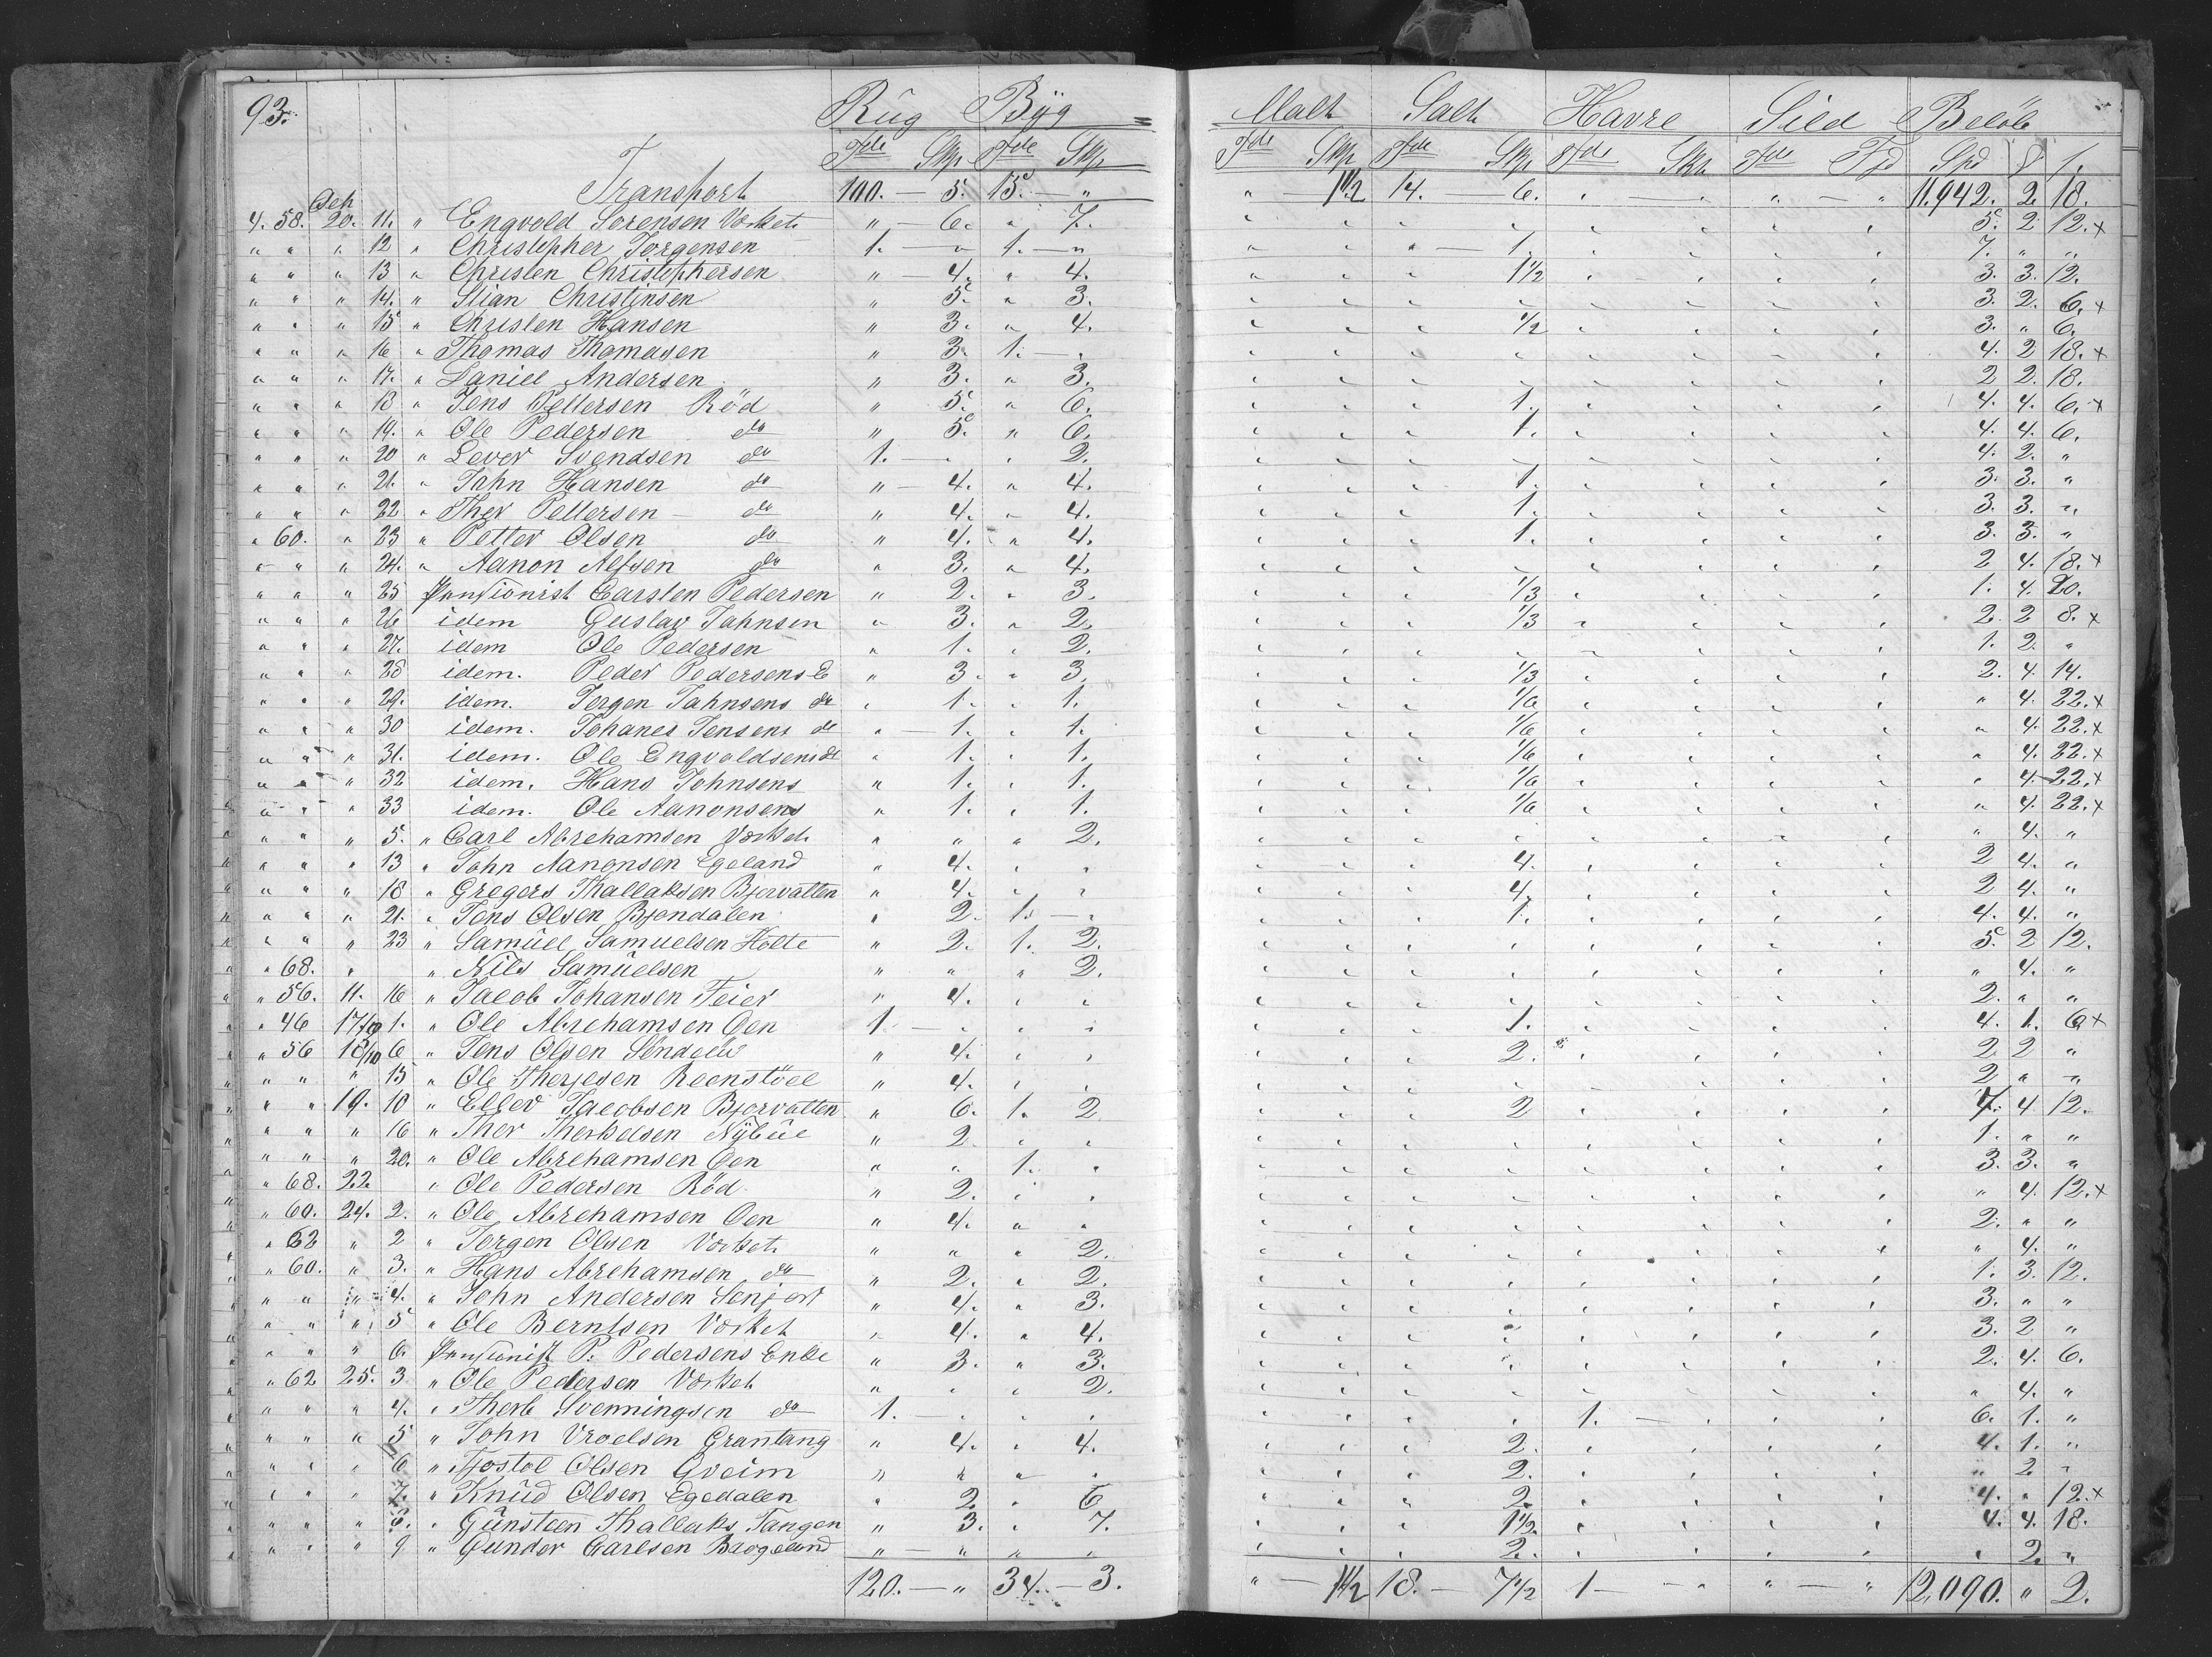 93. Rüg Bÿg Malt Salt Havre Sild Beløb
Tde Skp Tde Skp Tde Skp Tde Skp Tde Skp Tde Fjd Spd
Transport 100. — 5. 15. — " " — 1 1/2 14. — 6. " — " " — " 11.942. 2. 18.
4. 58. 20. 11. " Engvold Sørensen Værket " — 6. " 7. 5. 2 12. x
" " " 12 " Christopher Jørgensen 1. — " 1. — " 1. 7. " "
" " " 13 " Christen Christophersen " — 4. " 4. 1 1/2 3. 3. 12.
" " " 14. " Stian Christensen " 5. " 3. 3. 2. 6. x
" " " 15 " Christen Hansen " 3. " 4. 1/2 3. " 6.
" " " 16 " Thomas Thomasen " 3. 1. — " 4. 2 18. x
" " " 17. " Daniel Andersen " 3. " 3. 2 2. 18.
" " " 18 " Jens Pettersen Röd " 5. " 6. 1. 4. 4. 6. x
" " " 19. " Ole Pedersen do " 5. " 6. 1. 4. 4. 6.
" " " 20 " Lever Svendsen do 1. — " " 2. 4. 2. "
" " " 21. " John Hansen do " — 4. " 4. 1. 3. 3. "
" " " 22 " Ther Pettersen — do " 4. " 4. 1. 3. 3. "
" 60. " 23 " Petter Olsen do " 4. " 4. 1. 3. 3. "
" " " 24. " Aanon Alfsen do " 3. " 4. 2 4. 18. x
" " " 25 Pensionist Carsten Pedersen " 2. " 3. 1/3 1. 4. 20.
" " " 26 idem Gustav Johnsen " 3. " 2. 1/3 2. 2 8. x
" " " 27. idem Ole Pedersen " 1. " 2. 1. 2. "
" " " 28 idem. Peder Pedersens E " 3. " 3. 1/3 2. 4. 14.
" " " 29. idem. Jørgen Johnsens do " 1. " 1. 1/6 " 4. 22. x
" " " 30 idem. Johanes Jensens do " — 1. " 1. 1/6 " 4. 22. x
" " " 31. idem. Ole Engvoldsens do " 1. " 1. 1/6 " 4. 22. x
" " " 32 idem. Hans Johnsens " 1. " 1. 1/6 " 4. 22. x
" " " 33 idem. Ole Aanonsens " 1. " 1. 1/6 " 4. 22. x
" " " 5. " Carl Abrehamsen Værket " " " 2. " 4. "
" " " 13 " John Aanonsen Egeland " 4. " " 4. 2 4. "
" " " 18 " Gregers Thallaksen Bjorvatten " 4. " " 4. 2 4. "
" " " 21. " Jens Olsen Bjøndalen " 2. 1. — " 1. 4. 4. "
" " " 23 " Samüel Samuelsen Holte " 2. 1. 2. 5. 2 12.
" 68. " " Nils Samüelsen " " " 2. " 4. "
" 56. 11. 16 " Jacob Johansen Feier " 4. " " 2. " "
" 46 17/10 1. " Ole Abrehamsen Øen 1. — " " " 1. 4. 1. 6 x
" 56 18/10 6 " Jens Olsen " 4. " " 2. 2 2 "
" " " 15 " Ole Therjesen Reenstöel " 4. " " 2 " "
" " 19. 10 " Ellev Jacobsen Bjorvatten " 6. 1. 2 2 7. 4 12.
" " " 16 " Ther Therkelsen Nÿbüe " 2. " " 1. " "
" " " 20. " Ole Abrehamsen Øen " " 1. " 3. 3. "
" 68. 22. " Ole Pedersen Röd " 2. " " " 4. 12. x
" 60. 24. 2. " Ole Abrehamsen Øen " 4. " " 2. " "
" 62 " 2 " Jørgen Olsen Værket " " " 2. " 4. "
" 60. " 3. " Hans Abrehamsen do " 2. " 2. 1. 3. 12.
" " " 4. " John Andersen " 4. " 3. 3. " "
" " " 5 " Ole Berntsen Værket " 4. " 4. 3. 2 "
" " " 6. Pensionist P. Pedersens Enke " 3. " 3. 2. 4. 6.
" 62 25. 3 " Ole Pedersen Værket " " " 2. " 4. "
" " " 4. " Therb Svenningsen do 1. — " " " 1. — " 6. 1. "
" " " 5 " John Vroelsen Grantang " 4. " 4. 2. 4. 1. "
" " " 6 " Tjostol Olsen Gveim " " " " 2. " 2. "
" " " 7. " Knüd Olsen Egedalen " 2. " 6 2. 4. " 12. x
" " " 8. " Günsteen Thallaks. Tangen " 3. " 7. 1 1/2 4. 4. 18.
" " " 9 " Gunder Carlsen " — " " " 2. " 2. "
120. — " 34. — 3. " — 1 1/2 18. — 7 1/2 1 — " " — " 12,090. " 2.